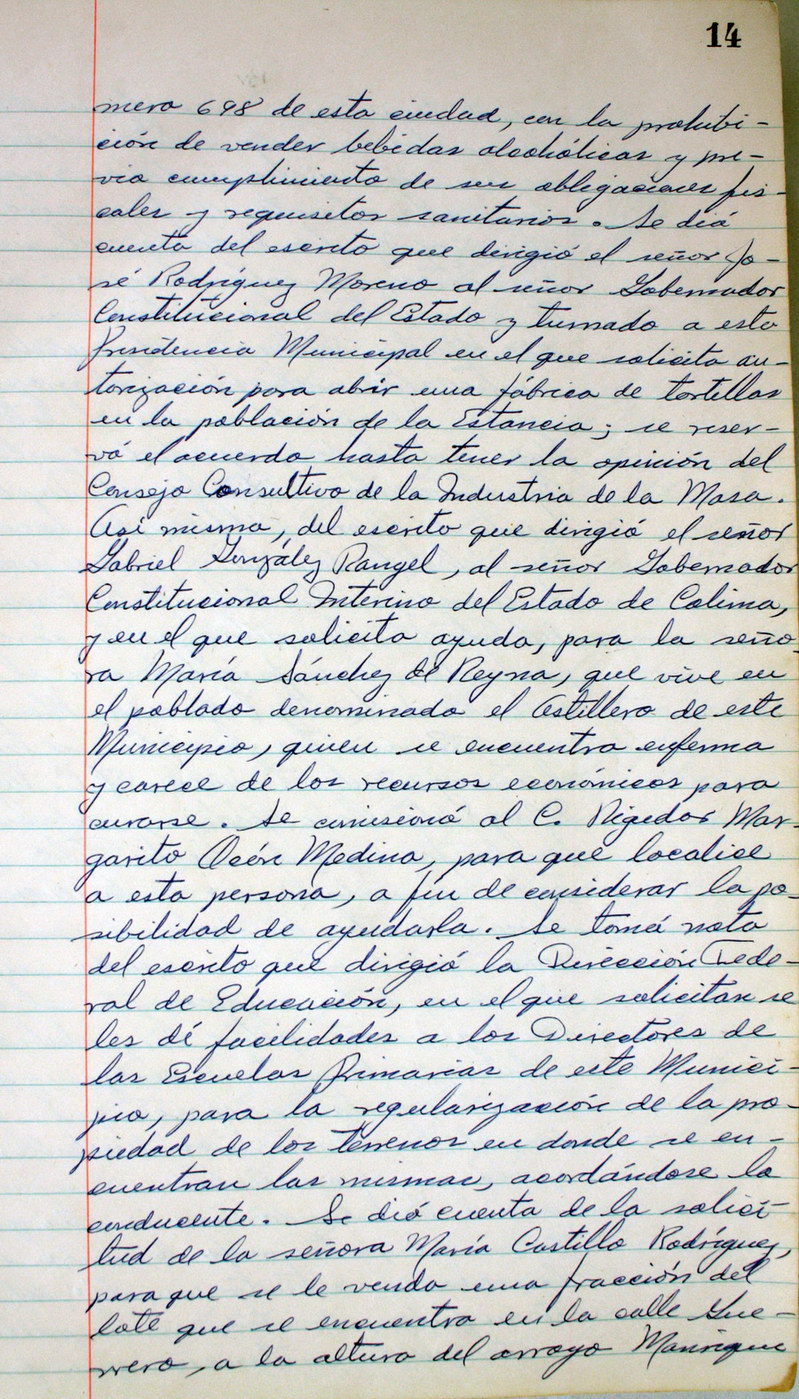 14
mero 698 de esta ciudad, con la prohibi-
ción de vender bebidas alcohólicas y pre-
vio cumplimiento de sus obligaciones fis-
cales y requisitos sanitarios. Se dió
cuenta del escrito que dirigió el señor Jo-
sé Rodríguez Moreno al señor Gobernador
Constitucional del Estado y turnado a esta
Presidencia Municipal en el que solicita au-
torización para abrir una fábrica de tortillas
en la población de la Estancia; se reser-
vó el acuerdo hasta tener la opinión del
Consejo Consultivo de la Industria de la Masa.
Así mismo, del escrito que dirigió el señor
Gabriel González Rangel, al señor Gobernador
Constitucional Interino del Estado de Colima,
y en el que solicita ayuda, para la seño-
ra María Sánchez de Reyna, que vive en
el poblado denominado el Astillero de este
Municipio, quien se encuentra enferma
y carece de los recursos económicos para
curarse. Se comisionó al C. Regidor Mar-
garito Ocón Medina, para que localice
a esta persona, a fin de considerar la po-
sibilidad de ayudarla. Se tomó nota
del escrito que dirigió la Dirección Fede-
ral de Educación, en el que solicitan se
les dé facilidades a los Directores de
las Escuelas Primarias de este Munici-
pio, para la regularización de la pro-
piedad de los terrenos en donde se en-
cuentran las mismas, acordándose lo
conducente. Se dió cuenta de la solici-
tud de la señora María Castillo Rodríguez,
para que se le venda una fracción del
lote que se encuentra en la calle Gue-
rrero, a la altura del arroyo Manrique